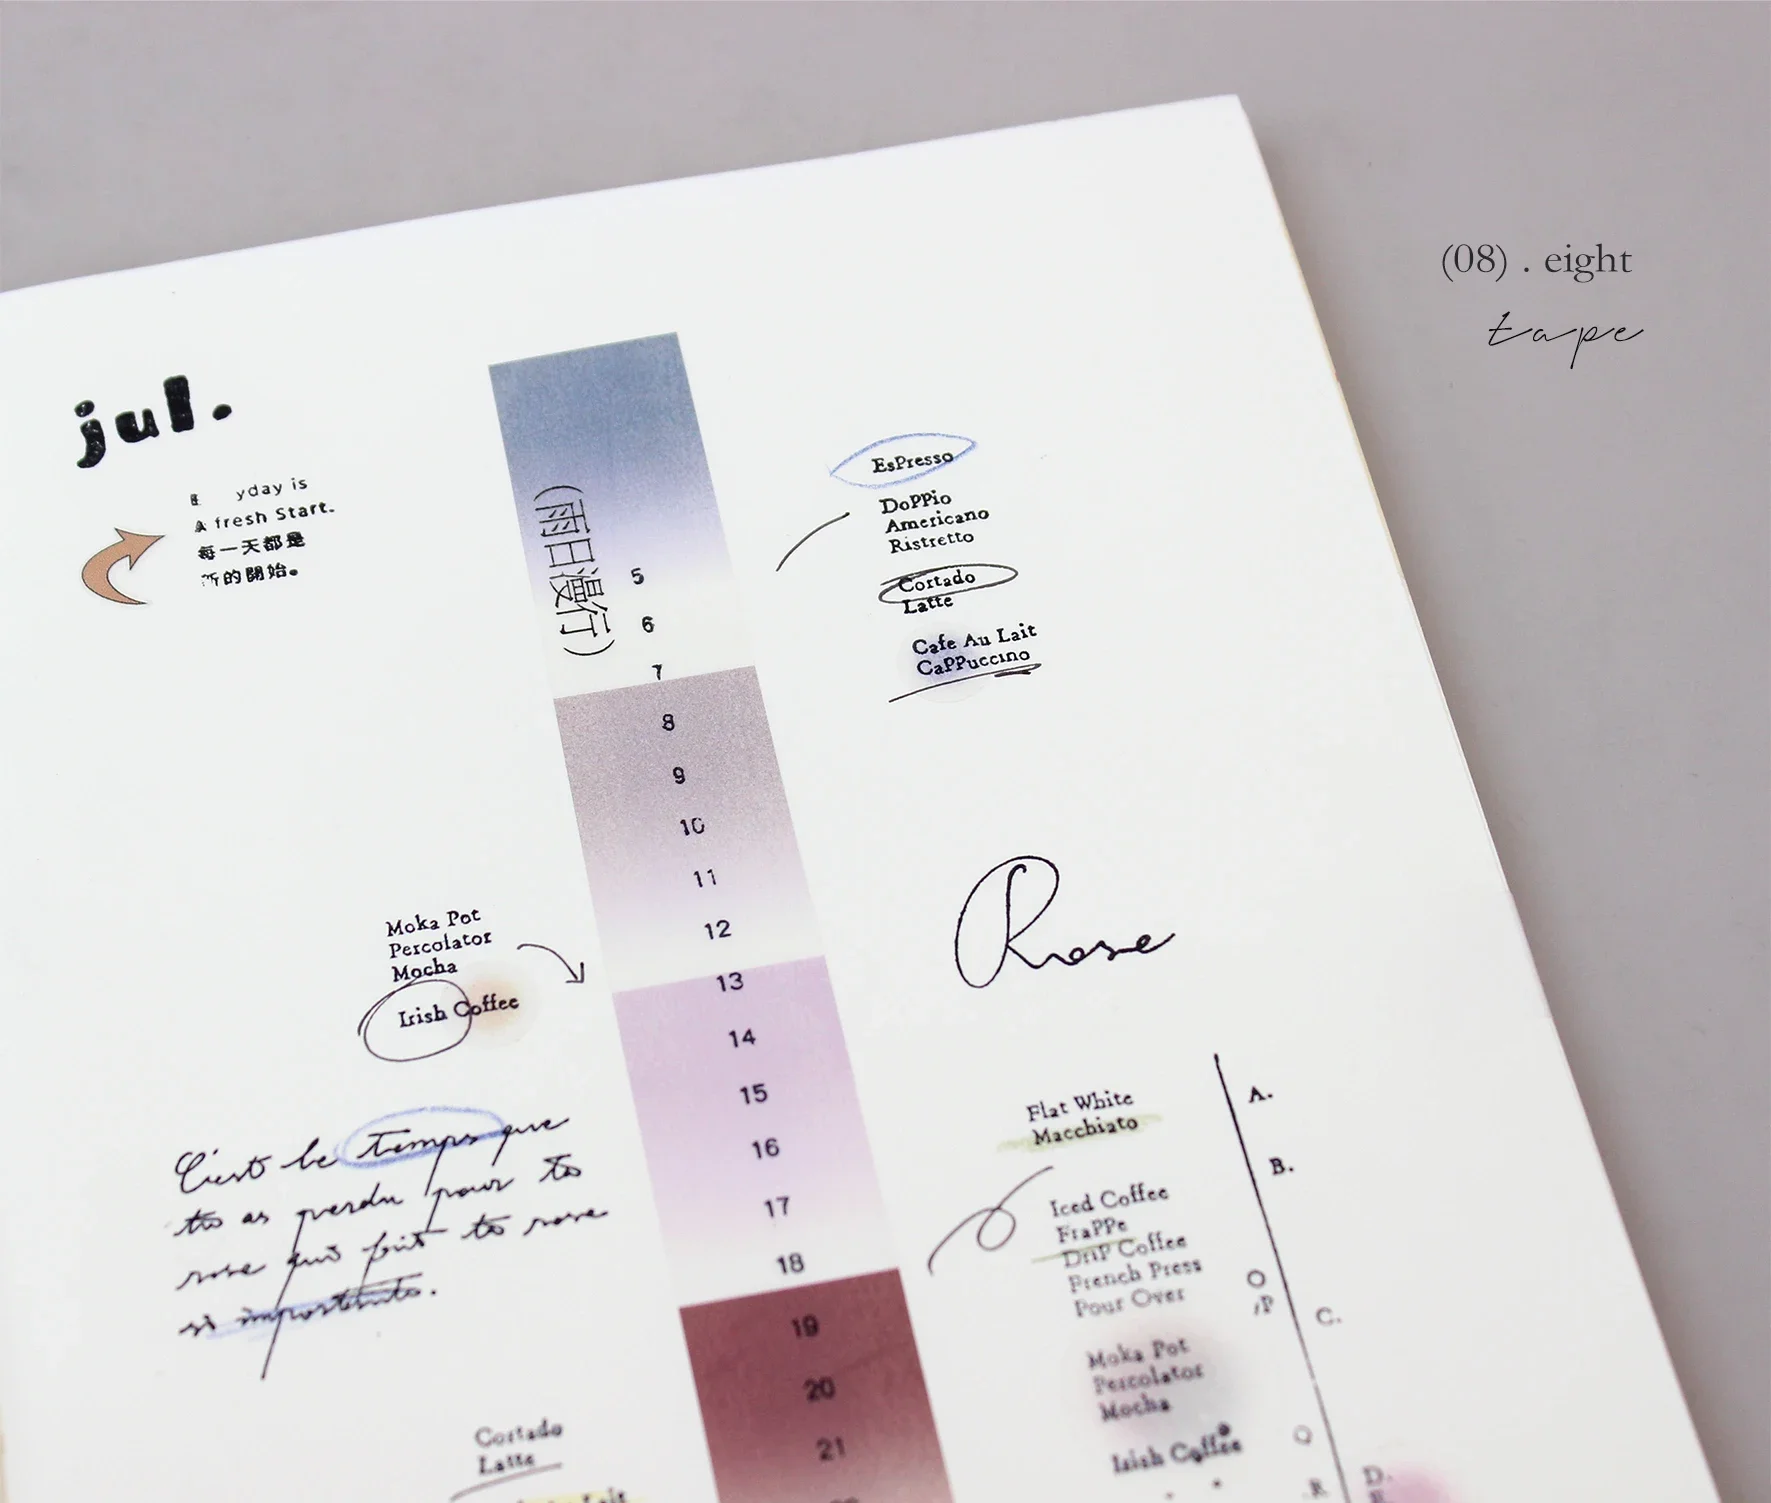 (08) . eight
tape
jul.
yday is
A fresh Start.
每一天都是
新的開始。
(雨日漫行)
5
6
7
8
9
10
11
12
13
14
15
16
17
18
19
20
21
EsPresso
DoPPio
Americano
Ristretto
Cortado
Latte
Cafe Au Lait
CaPPuccino
Moka Pot
Percolator
Mocha
Irish Coffee
Rose
C'est le temps que
tu as perdu pour ta
rose qui fait ta rose
si importante.
Flat White
Macchiato
Iced Coffee
FraPPe
DriP Coffee
French Press
Pour Over
Moka Pot
Percolator
Mocha
Irish Coffee
A.
B.
C.
D.
Cortado
Latte